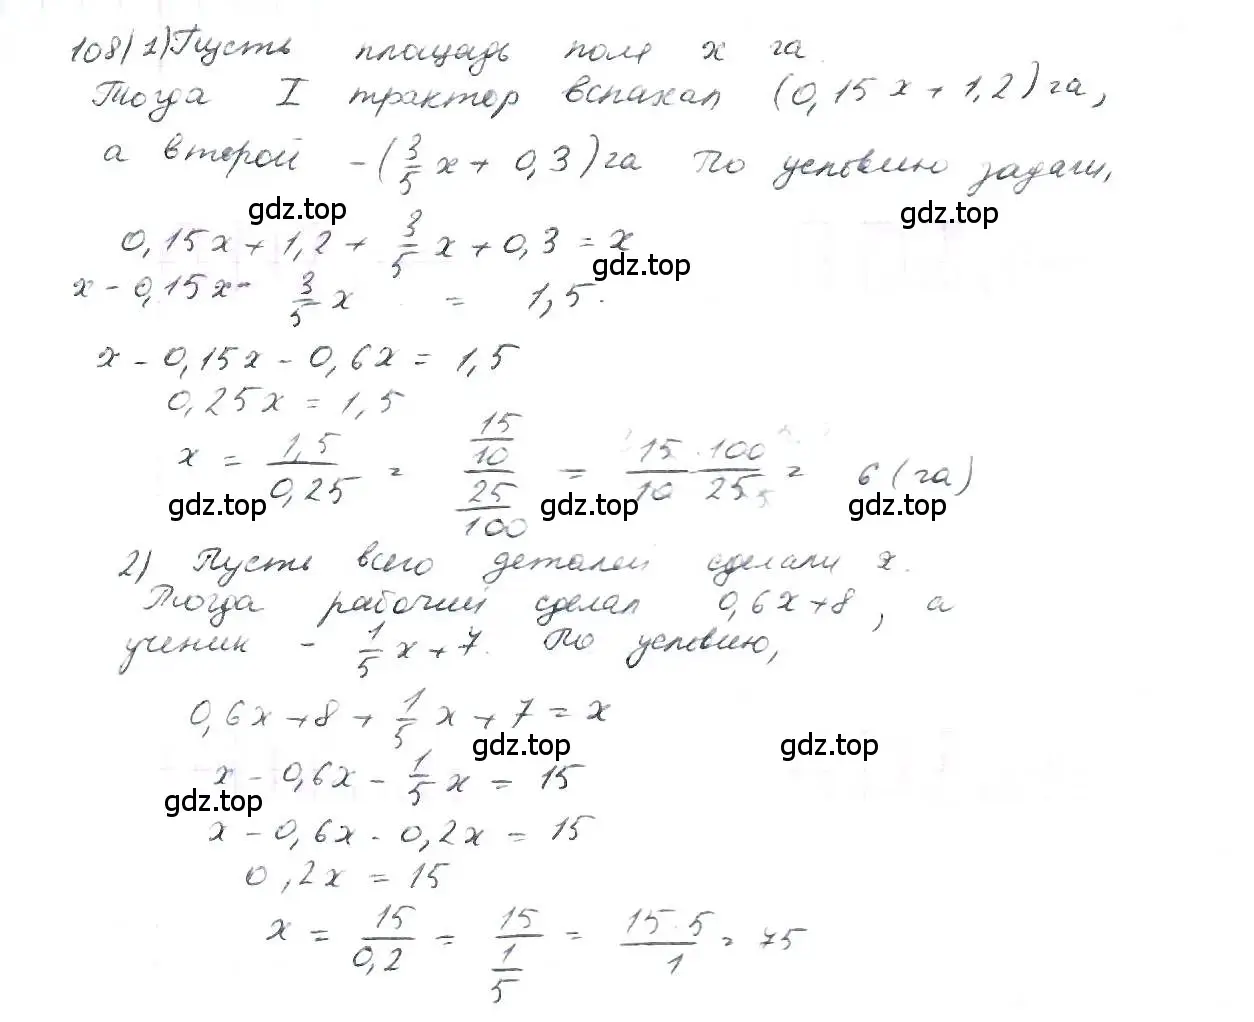 108 1) Пусть площадь поля x га.
Тогда I трактор вспахал (0,15x + 1,2) га,
а второй - (3/5 x + 0,3) га По условию задачи,
gdz.top gdz.top
0,15x + 1,2 + 3/5 x + 0,3 = x
gdz.top
x - 0,15x - 3/5 x = 1,5.
x - 0,15x - 0,6x = 1,5
0,25x = 1,5
x = 1,5/0,25 = (15/10)/(25/100) = 15 · 100/10 · 25 = 6 (га)
gdz.top gdz.top gdz.top
2) Пусть всего деталей сделали x.
Тогда рабочий сделал 0,6x + 8, а
ученик - 1/5 x + 7. По условию,
0,6x + 8 + 1/5 x + 7 = x
gdz.top gdz.top
x - 0,6x - 1/5 x = 15
gdz.top
x - 0,6x - 0,2x = 15
0,2x = 15
x = 15/0,2 = 15/(1/5) = 15 · 5/1 = 75